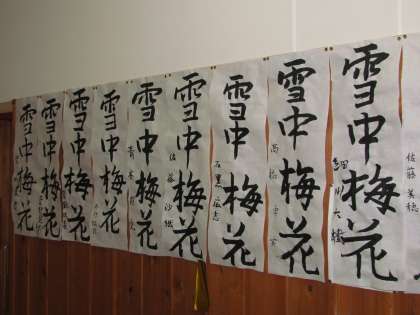 佐藤美穂
雪中梅花
雪中梅花
高橋
雪中梅花
石黒広志
雪中梅花
佐藤沙織
雪中梅花
青木
雪中梅花
雪中梅花
雪中梅花
雪中梅花